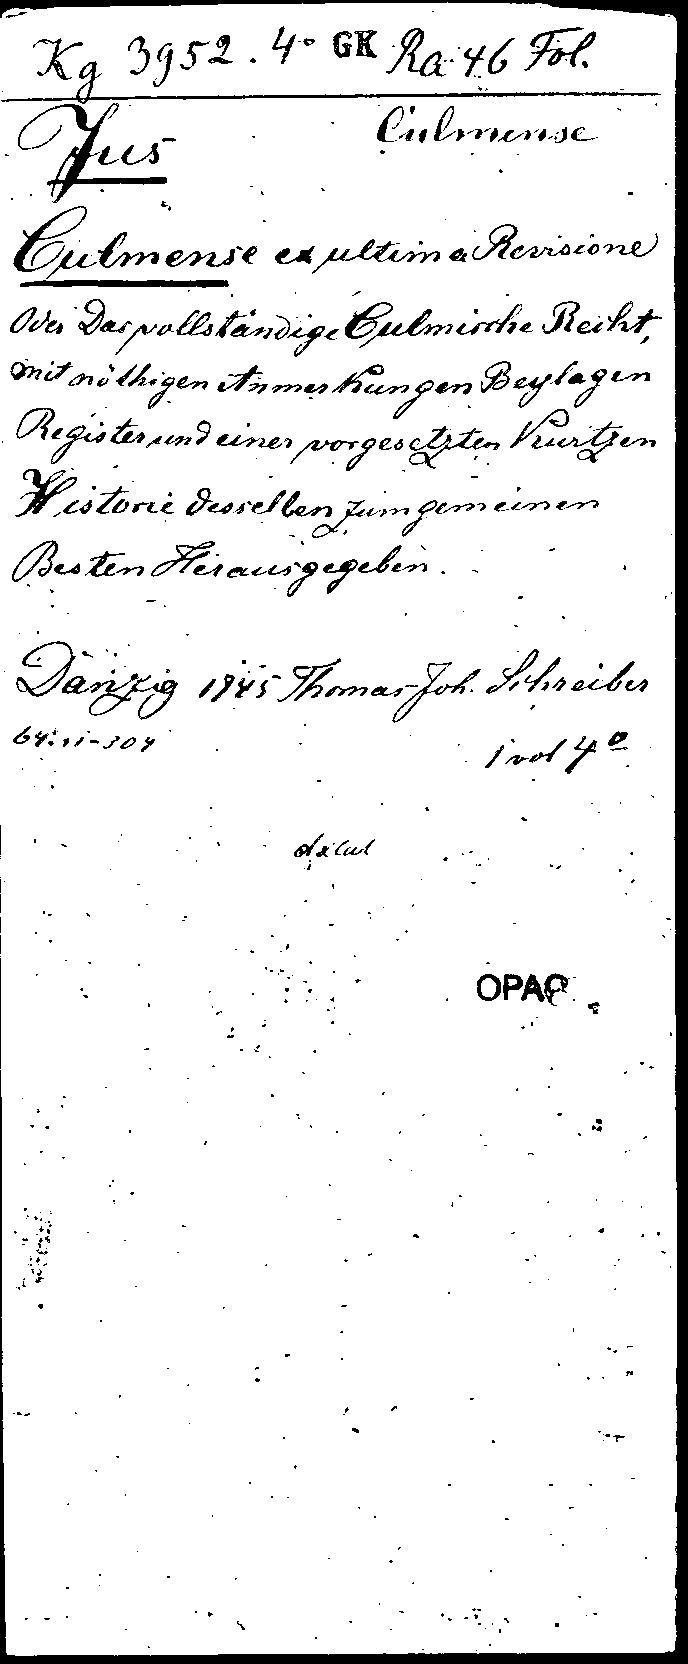 Kg 3952. 4° GK Ra 46 Fol.
Jus Culmense
Culmense ex ultima Revisione
Oder Das vollständige Culmische Recht,
mit nöthigen Anmerkungen Beylagen
Register und einer vorgesetzten Kurtzen
Historie desselben zum gemeinen
Besten Herausgegeben.
Danzig 1745 Thomas Joh. Schreiber
64:11-304
1 vol 4°
OPAC